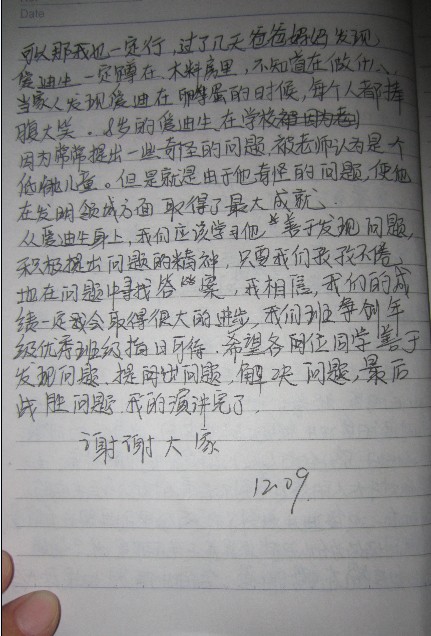 Date
可以那我也一定行,过了几天爸爸妈妈发现
爱迪生一定蹲在木料房里,不知道在做什么
当家人发现爱迪在孵鸡蛋的时候,每个人都捧
腹大笑。8岁的爱迪生在学校
因为常常提出一些奇怪的问题,被老师认为是个
低能儿童。但是就是由于他奇怪的问题,使他
在发明领域方面取得了最大成就
从爱迪生身上,我们应该学习他,善于发现问题,
积极提出问题的精神,只要我们孜孜不倦
地在问题中寻找答案,我相信,我们的成
绩一定会取得很大的进步,我们班争创年
级优秀班级指日可待.希望各位同学善于
发现问题.提出问题,解决问题,最后
战胜问题.我的演讲完了.
谢谢大家
12.09.